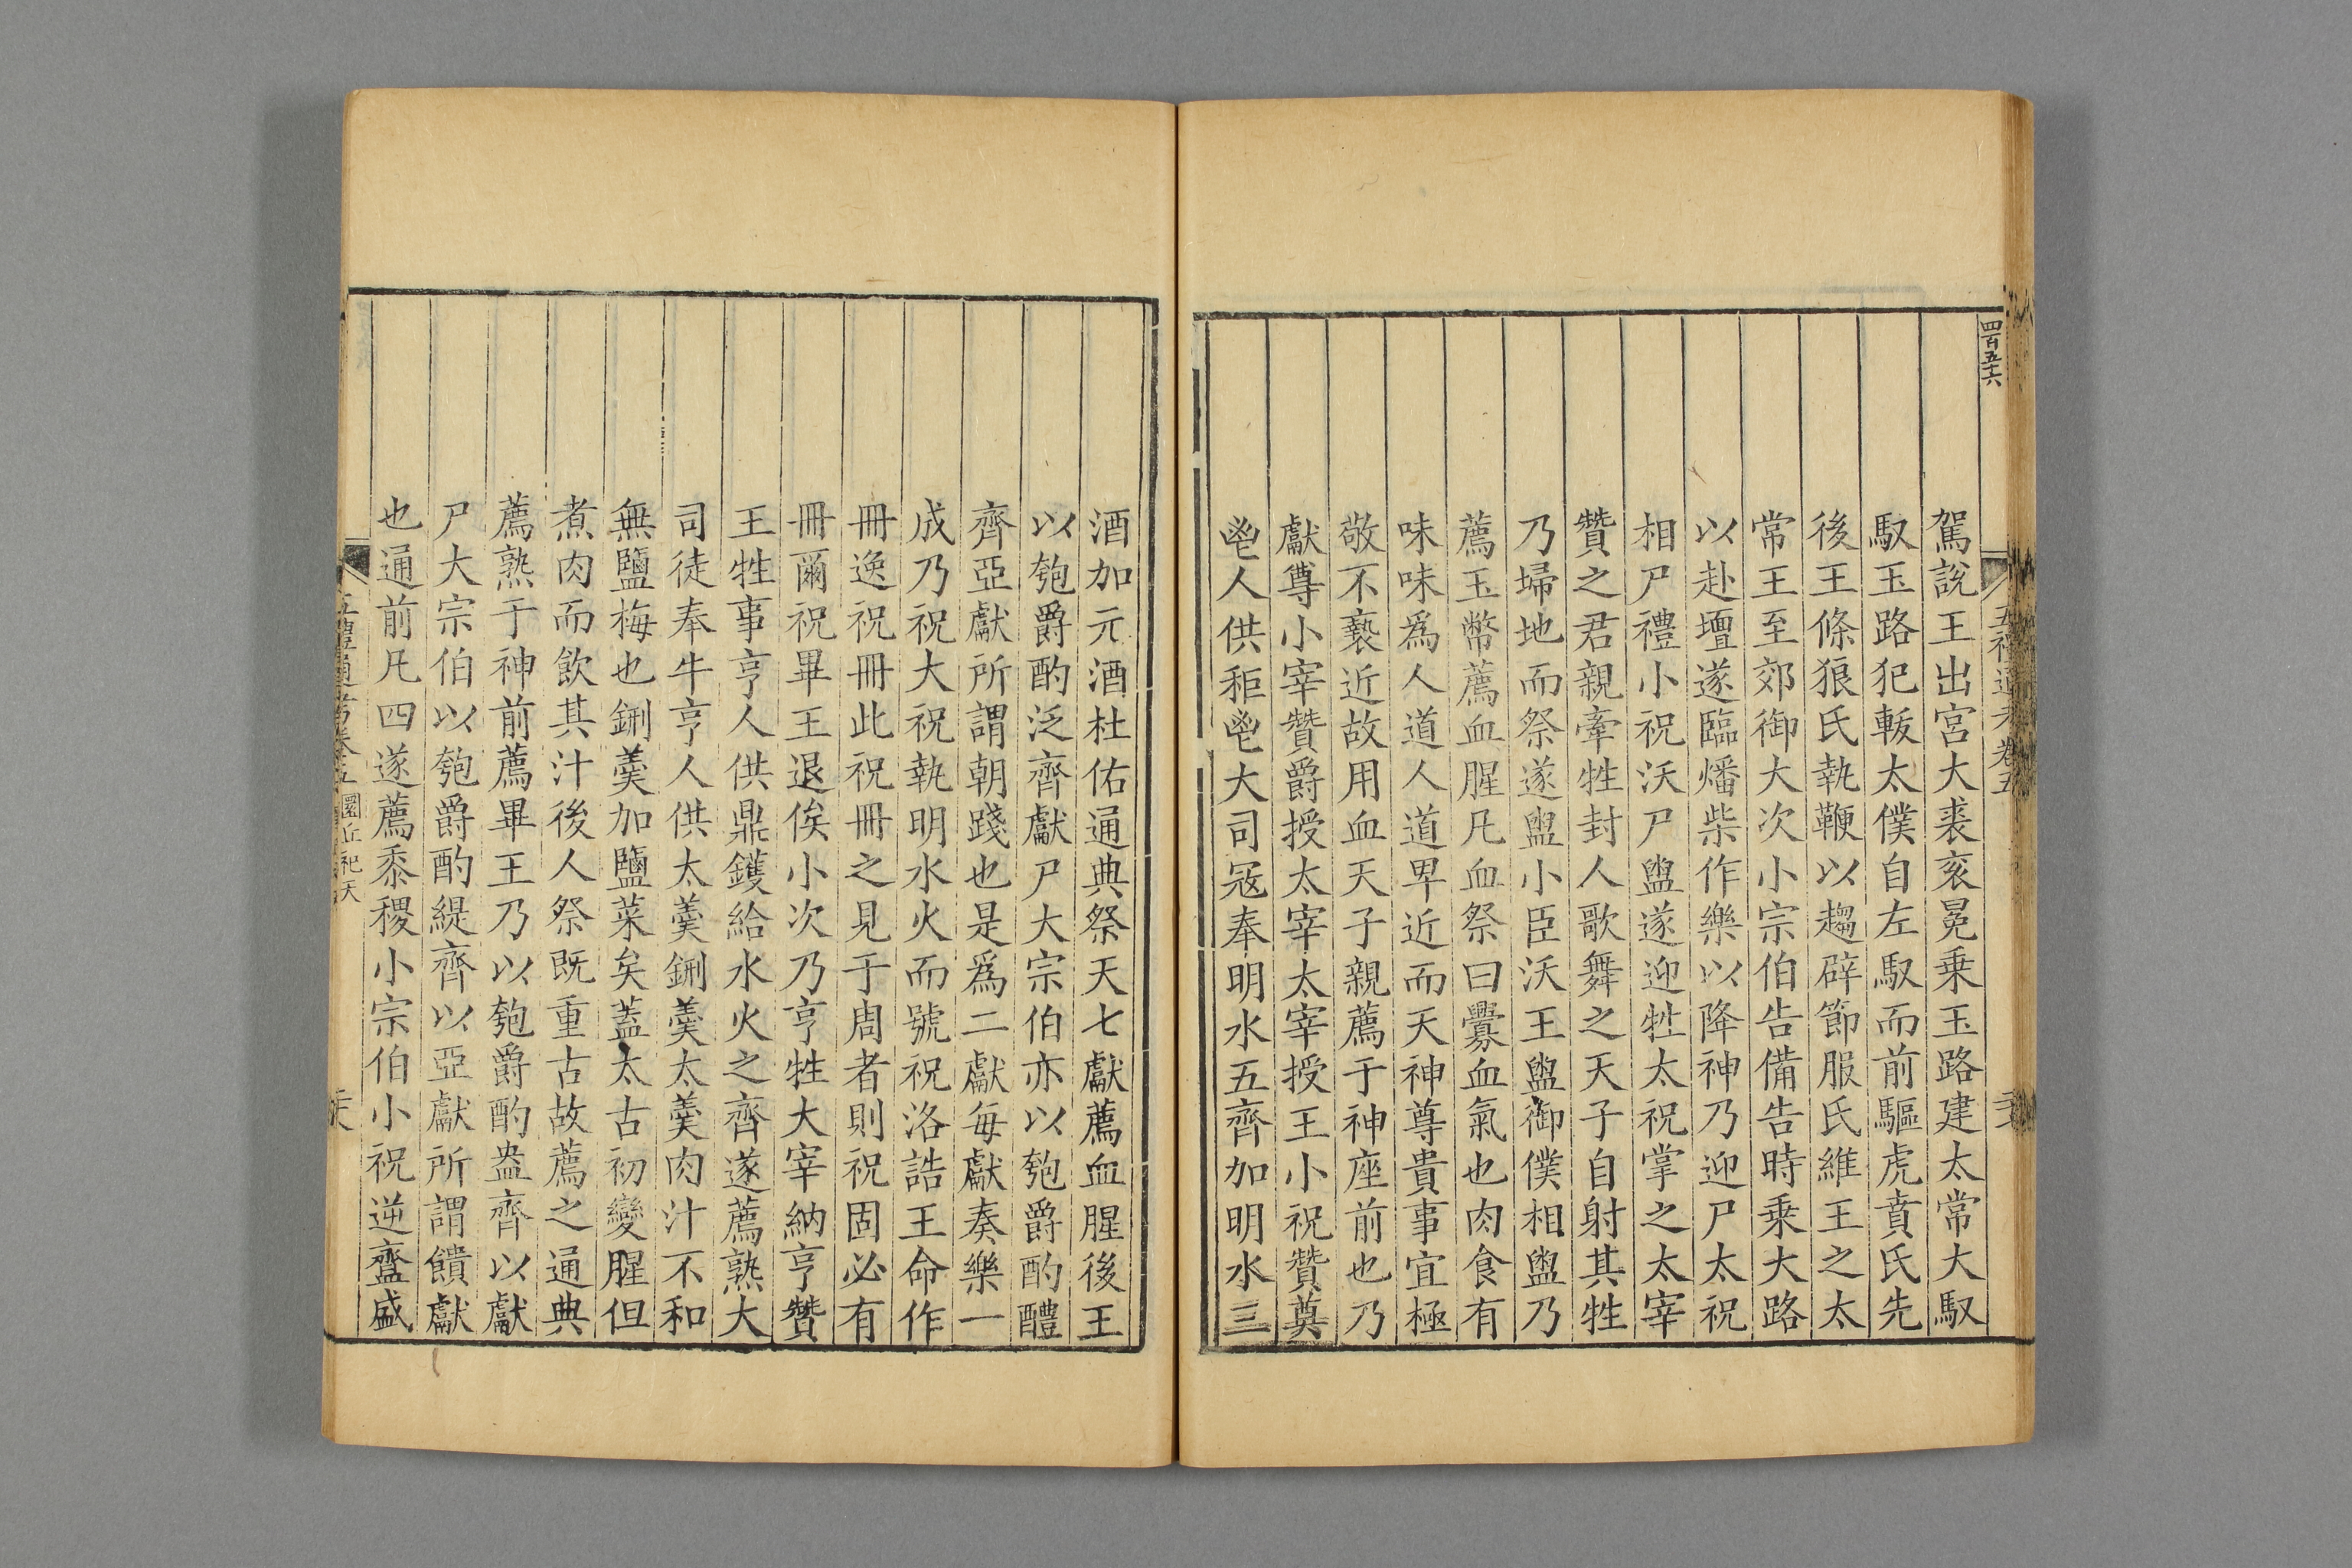 四百五十六
五禮通考卷五
駕說王出宮大裘衮冕乗玉路建太常大馭
馭玉路犯軷太僕自左馭而前驅虎賁氏先
後王條狼氏執鞭以趨辟節服氏維王之太
常王至郊御大次小宗伯告備告時乗大路
以赴壇遂臨燔柴作樂以降神乃迎尸太祝
相尸禮小祝沃尸盥遂迎牲太祝掌之太宰
贊之君親牽牲封人歌舞之天子自射其牲
乃埽地而祭遂盥小臣沃王盥御僕相盥乃
薦玉幣薦血腥凡血祭曰釁血氣也肉食有
味味爲人道人道卑近而天神尊貴事宜極
敬不褻近故用血天子親薦于神座前也乃
獻尊小宰贊爵授太宰太宰授王小祝贊奠
鬯人供秬鬯大司寇奉明水五齊加明水三
酒加元酒杜佑通典祭天七獻薦血腥後王
以匏爵酌泛齊獻尸大宗伯亦以匏爵酌醴
齊亞獻所謂朝踐也是爲二獻每獻奏樂一
成乃祝大祝執明水火而號祝洛誥王命作
冊逸祝冊此祝冊之見于周者則祝固必有
冊爾祝畢王退俟小次乃亨牲大宰納亨贊
王牲事亨人供鼎鑊給水火之齊遂薦熟大
司徒奉牛亨人供太羹鉶羹太羹肉汁不和
無鹽梅也鉶羹加鹽菜矣蓋太古初變腥但
煮肉而飲其汁後人祭既重古故薦之通典
薦熟于神前薦畢王乃以匏爵酌盎齊以獻
尸大宗伯以匏爵酌緹齊以亞獻所謂饋獻
也通前凡四遂薦黍稷小宗伯小祝逆齍盛
五禮通考卷五 圜丘祀天